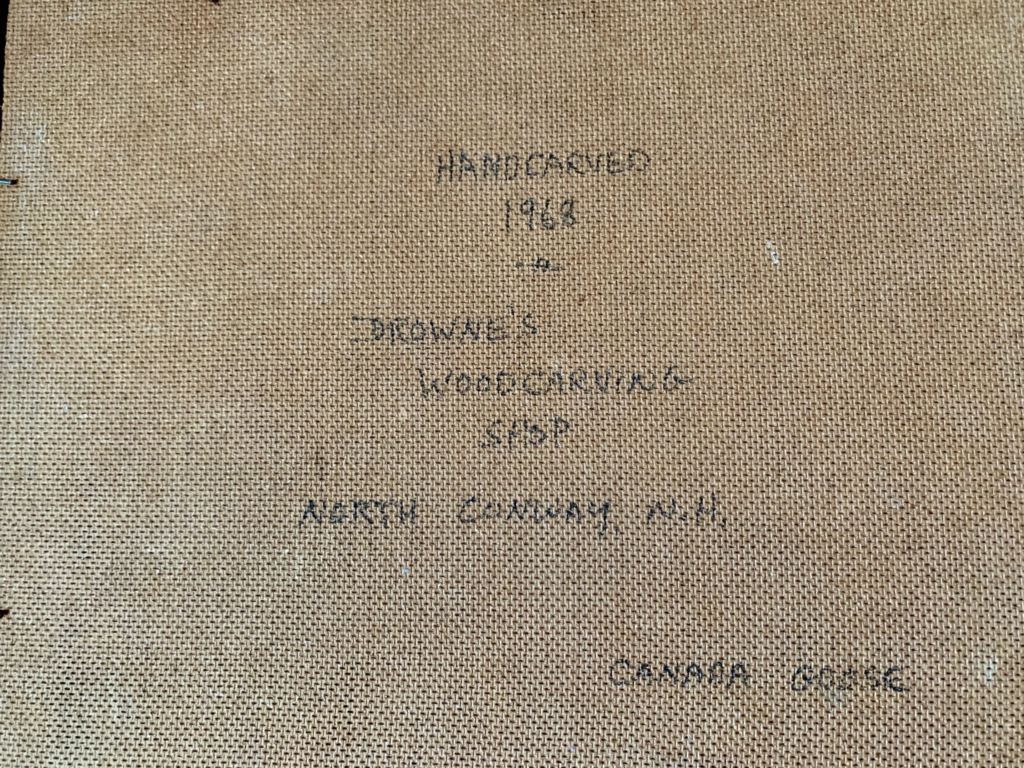 HANDCARVED
1968
DROWNE'S
WOODCARVING
SHOP
NORTH CONWAY, N.H.
CANADA GOOSE